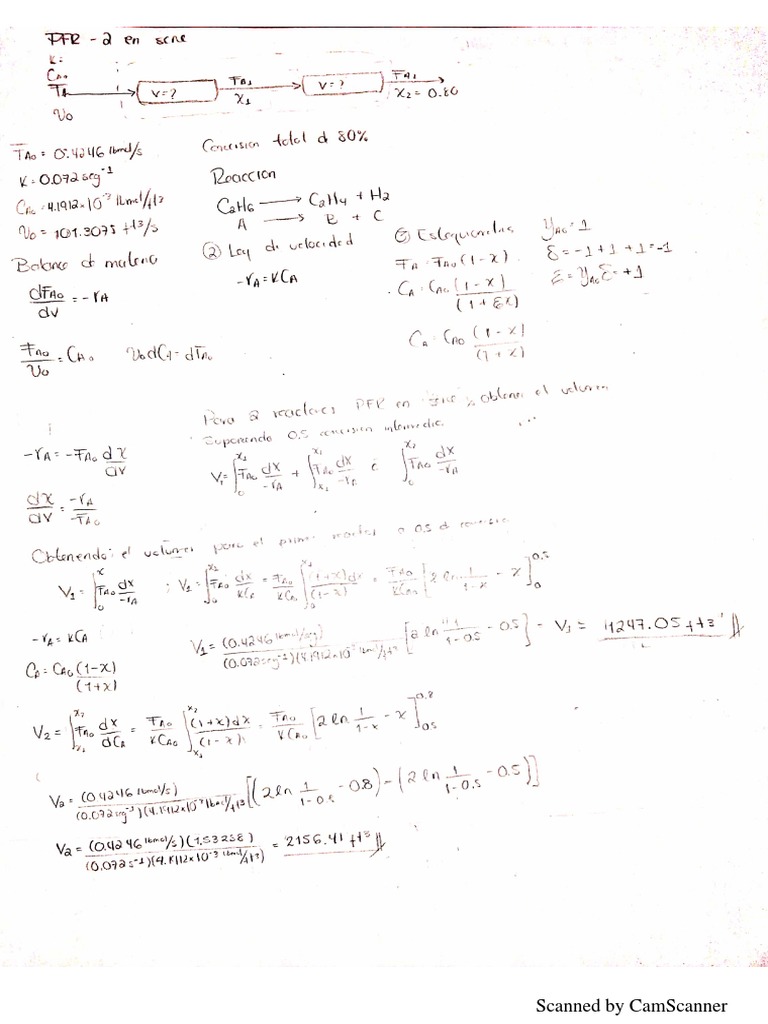 PFR - 2 en serie
K=
CA0
FA
V0
V=?
FA1
X1
V=?
FA2
X2 = 0.80
FA0 = 0.4246 lbmol/s
K = 0.072 seg⁻¹
CA0 = 4.1912x10⁻³ lbmol/ft3
V0 = 101.3075 ft3/s
Balance d materia
dFA0/dV = -rA
FA0/V0 = CA0
V0 dCA = dFA0
Conversion total d 80%
Reaccion
C2H6 → C2H4 + H2
A → B + C
② Ley de velocidad
-rA = KCA
③
FA = FA0 (1-x)
CA = CA0 (1-x)/(1+εx)
CA = CA0 (1-x)/(1+x)
yA0 = 1
δ = -1+1+1 = -1
ε = yA0 δ = +1
Para 2 reactores PFR en serie, obtener el volumen
Suponiendo 0.5 conversion intermedia
-rA = -FA0 dx/dv
dx/dv = -rA/-FA0
V1 = ∫₀^x1 FA0 dx/-rA + ∫x1^x2 FA0 dx/-rA ó ∫₀^x2 FA0 dx/-rA
Obteniendo el volumen para el primer reactor a 0.5 d conversion
V1 = ∫₀^x FA0 dx/-rA ; V1 = ∫₀ FA0 dx/KCA = FA0/KCA0 ∫ (1+x)dx/(1-x) = FA0/KCA0 [2 ln 1/1-x - x]₀^0.5
-rA = KCA
CA = CA0 (1-x)/(1+x)
V1 = (0.4246 lbmol/seg)/(0.072 seg⁻¹)(4.1912x10⁻³ lbmol/ft3) [2 ln 1/1-0.5 - 0.5] - V1 = 1247.05 ft3
V2 = ∫x1^x2 FA0 dx/dCA = FA0/KCA0 ∫x1^x2 (1+x)dx/(1-x) = FA0/KCA0 [2 ln 1/1-x - x]0.5^0.8
V2 = (0.4246 lbmol/s)/(0.072 seg⁻¹)(4.1912x10⁻³ lbmol/ft3) [(2 ln 1/1-0.8 - 0.8) - (2 ln 1/1-0.5 - 0.5)]
V2 = (0.4246 lbmol/s)(1.53258)/(0.072 s⁻¹)(4.1912x10⁻³ lbmol/ft3) = 2156.41 ft3
Scanned by CamScanner